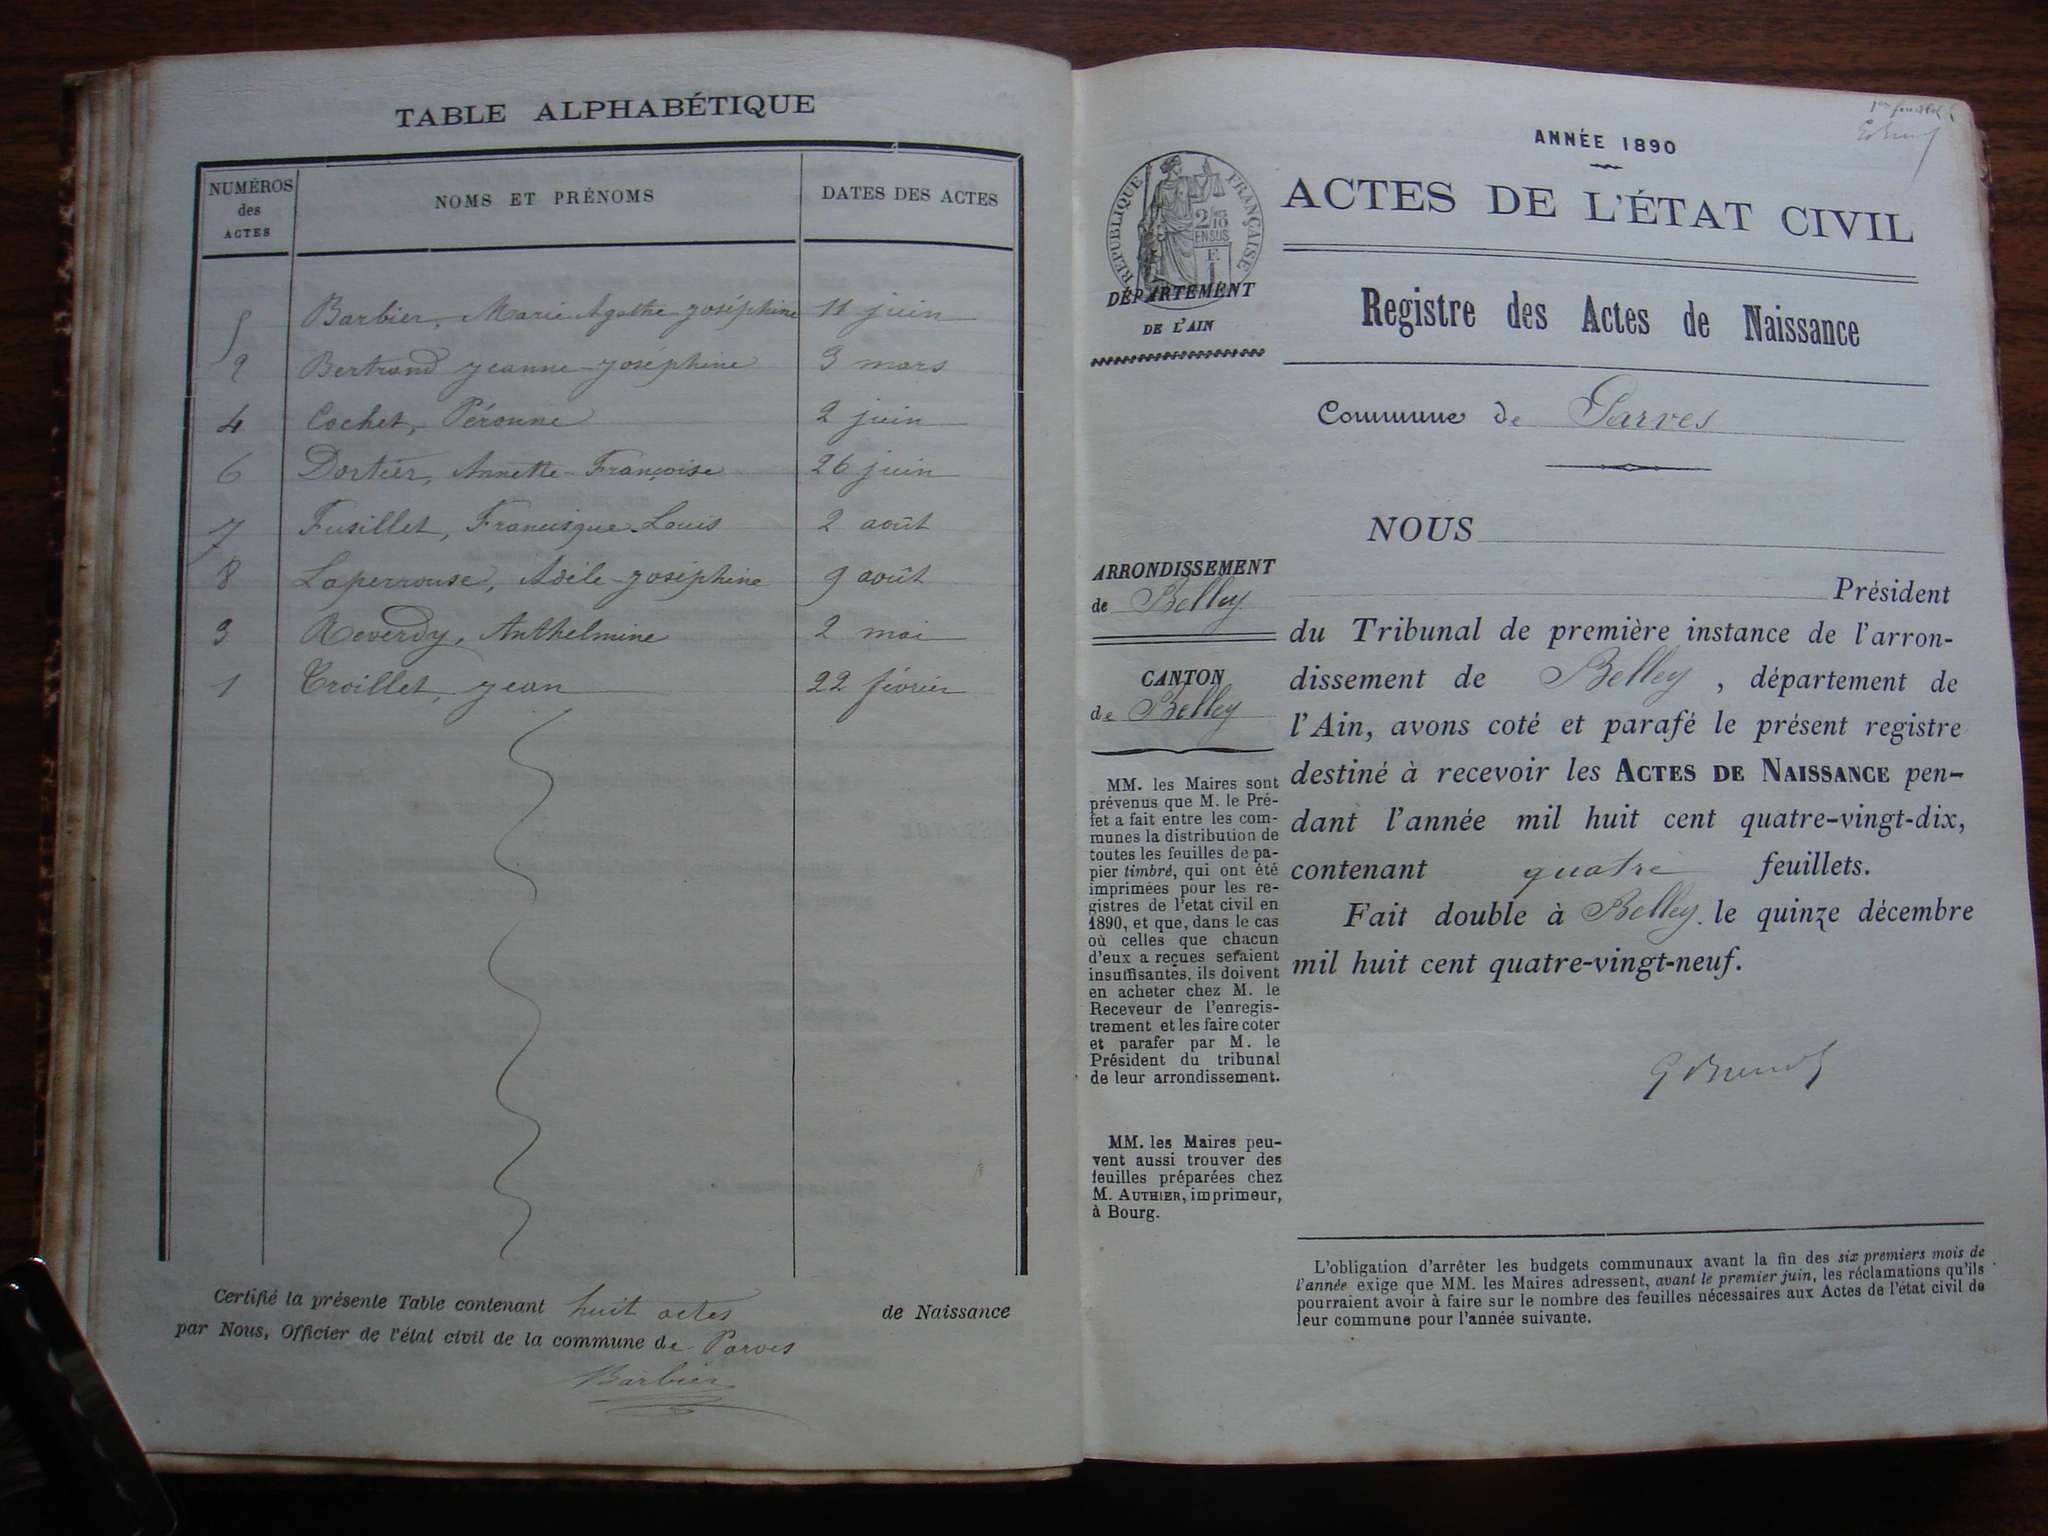 TABLE ALPHABÉTIQUE
NUMÉROS des ACTES
NOMS ET PRÉNOMS
DATES DES ACTES
5 Barbier, Marie Agathe-Joséphine 11 juin
2 Bertrand Jeanne-Joséphine 3 mars
4 Cochet, Péronne 2 juin
6 Dortier, Annette-Françoise 26 juin
7 Fusillet, Francisque-Louis 2 août
8 Laperrouse, Adèle-Joséphine 9 août
3 Reverdy, Anthelmine 2 mai
1 Troillet, Jean 22 février
Certifié la présente Table contenant huit actes de Naissance
par Nous, Officier de l'état civil de la commune de Parves
Barbier
1er feuillet
ANNÉE 1890
ACTES DE L'ÉTAT CIVIL
RÉPUBLIQUE FRANÇAISE
2/10
EN SUS
F.
1
DÉPARTEMENT
DE L'AIN
Registre des Actes de Naissance
Commune de Parves
NOUS
Président
du Tribunal de première instance de l'arron-
dissement de Belley, département de
l'Ain, avons coté et parafé le présent registre
destiné à recevoir les ACTES DE NAISSANCE pen-
dant l'année mil huit cent quatre-vingt-dix,
contenant quatre feuillets.
Fait double à Belley. le quinze décembre
mil huit cent quatre-vingt-neuf.
ARRONDISSEMENT
de Belley
CANTON
de Belley
MM. les Maires sont
prévenus que M. le Pré-
fet a fait entre les com-
munes la distribution de
toutes les feuilles de pa-
pier timbré, qui ont été
imprimées pour les re-
gistres de l'etat civil en
1890, et que, dans le cas
où celles que chacun
d'eux a reçues seraient
insuffisantes, ils doivent
en acheter chez M. le
Receveur de l'enregis-
trement et les faire coter
et parafer par M. le
Président du tribunal
de leur arrondissement.
MM. les Maires peu-
vent aussi trouver des
feuilles préparées chez
M. AUTHIER, imprimeur,
à Bourg.
L'obligation d'arrêter les budgets communaux avant la fin des six premiers mois de
l'année exige que MM. les Maires adressent, avant le premier juin, les réclamations qu'ils
pourraient avoir à faire sur le nombre des feuilles nécessaires aux Actes de l'état civil de
leur commune pour l'année suivante.